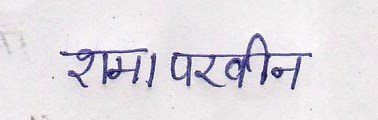 शमा परवीन